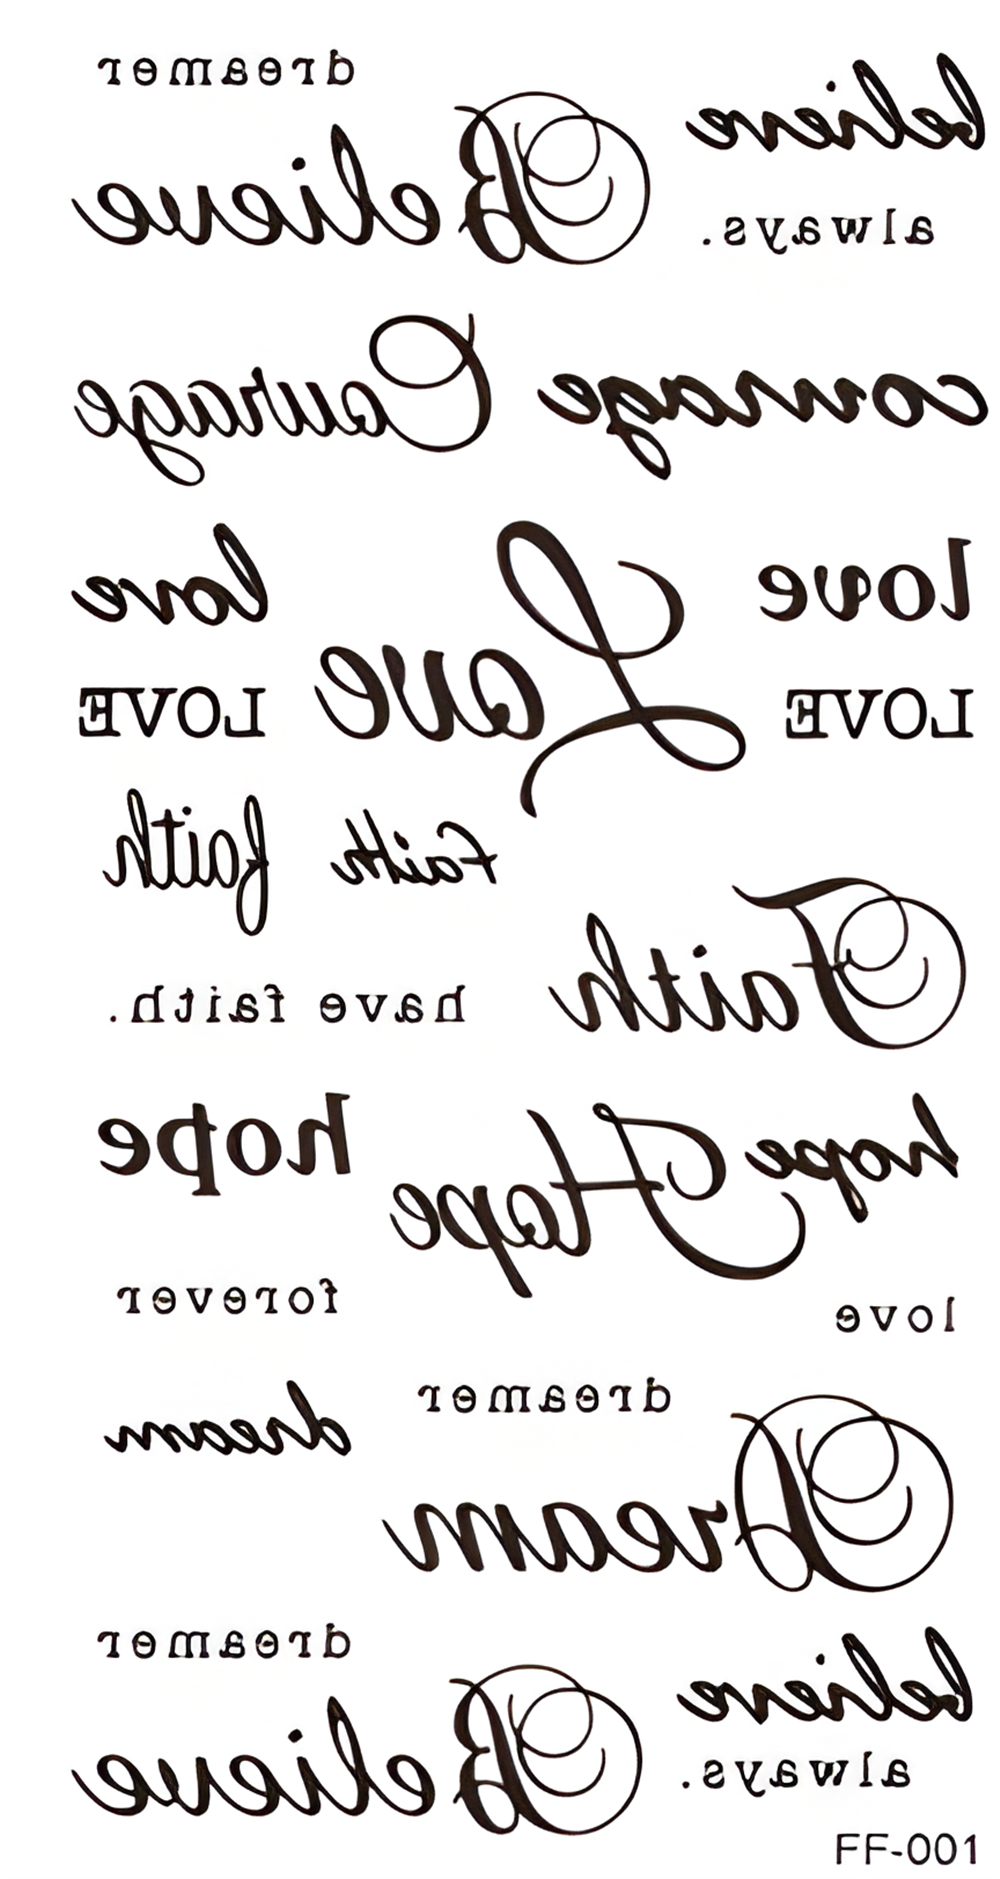 dreamer
believe
Believe
always.
Courage
courage
love
Love
love
LOVE
LOVE
faith
faith
Faith
have faith.
hope
Hope
hope
forever
love
dream
dreamer
Dream
dreamer
believe
Believe
always.
FF-001